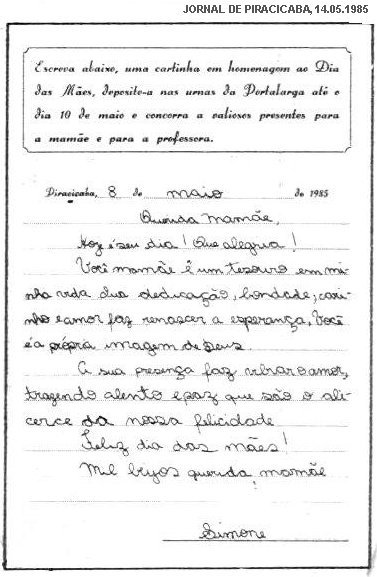 JORNAL DE PIRACICABA, 14.05.1985
Escreva abaixo, uma cartinha em homenagem ao Dia
das Mães, deposite-a nas urnas da Portalarga até o
dia 10 de maio e concorra a valiosos presentes para
a mamãe e para a professora.
Piracicaba, 8 de maio de 1985
Querida Mamãe,
Hoje é seu dia! Que alegria!
Você mamãe é um tesouro em mi-
nha vida sua dedicação, bondade, cari-
nho e amor faz renascer a esperança. Você
é a própria imagem de Deus.
A sua presença faz vibrar o amor,
trazendo alento e paz que são o ali-
cerce da nossa felicidade
Feliz dia das mães!
Mil beijos querida mamãe
Simone